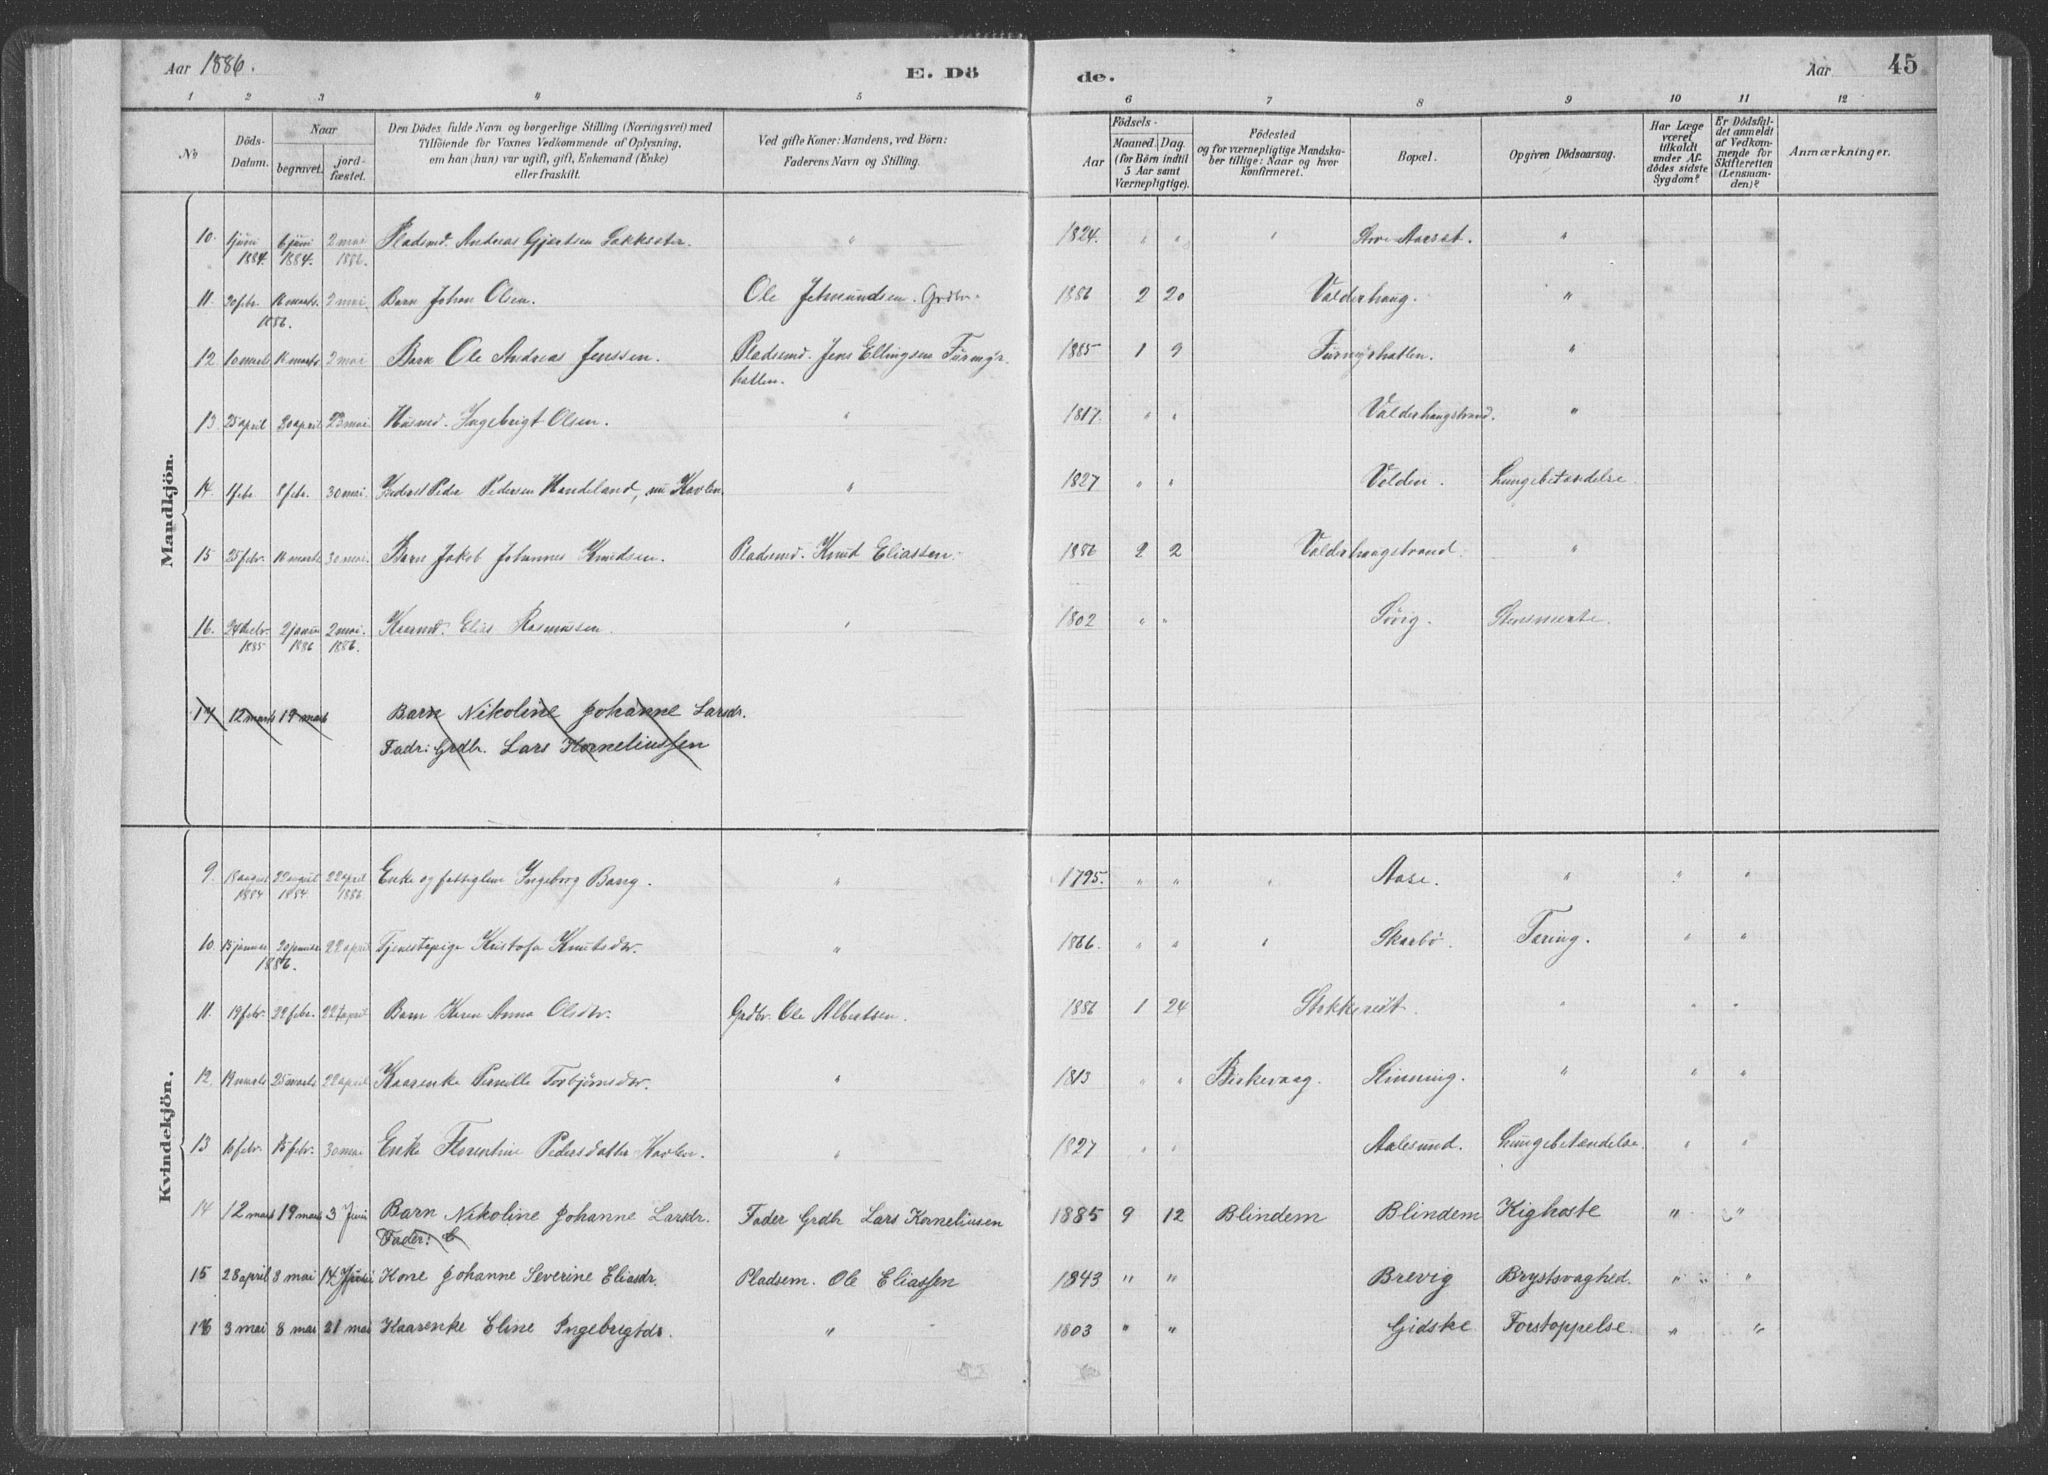 Aar 1886. E. Dö
de. Aar 45
1 2 3 4 5 6 7 8 9 10 11 12
No
Döds-Datum.
Naar
begravet.
jord-fæstet.
Den Dödes fulde Navn og borgerlige Stilling (Næringsvei) med
Tilföiende for Voxnes Vedkommende af Oplysning,
om han (hun) var ugift, gift, Enkemand (Enke)
eller fraskilt.
Ved gifte Koner: Mandens, ved Börn:
Faderens Navn og Stilling.
Födsels-
Aar
Maaned. Dag.
(for Börn indtil
5 Aar samt
Værnepligtige).
Födested
og for værnepligtige Mandska-
ber tillige: Naar og hvor
konfirmeret.
Bopæl.
Opgiven Dödsaarsag.
Har Læge
været
tilkaldt
under Af-
dödes sidste
Sygdom?
Er Dödsfal-
det anmeldt
af Vedkom-
mende for
Skifteretten
(Lensman-
den)?
Anmærkninger.
Mandkjön.
10. 1 juni 1884. 6 juni 1884. 2 mai 1886. Pladsmd. Andreas Gjertsen " 1824. " " " Aarset. "
11. 20 febr. 16 marts. 2 mai. Barn Johan Olsen. Ole Jetmundsen. Grdbr. 1886 2 20 Valderhaug. "
1886.
12 10 marts 16 marts 2 mai Barn Ole Andreas Jenssen. Pladsmd. Jens Ellingsen Furmyr-
hatten. 1885 1 9 Furmyrhatten. "
13 25 april 30 april 23 mai. Husmd. Ingebrigt Olsen. " 1817. " " Valderhaugstrand. "
14. 1 febr 8 febr. 30 mai. Peder Pedersen Handeland, nu Kavlen. " 1827 " " Volden. Lungebetændelse
15 25 febr. 16 marts 30 mai. Barn Jakob Johannes Knudsen. Pladsmd. Knud Eliassen. 1886 2 2 Valderhaugstrand. "
16. 24 decbr. 1885 2 januar 1886 2 mai. 1886. Kaarmd. Elias Rasmussen. " 1802 " " Sövig. Stensmerte.
17 12 marts 19 marts Barn Nikoline Johanne Larsdr.
Fadr: Grdbr. Lars Korneliussen
Kvindekjön.
9. 18 august 1884 22 august 1884. 22 april 1886. Enke og fattiglem Ingeborg Bang. " 1795. " " " Aase. " " "
10 15 januar 20 januar 22 april Tjenestepige Kristofa Knutsdtr. " 1866. " " " Skarbö. Tæring. " "
1886.
11. 19 febr. 22 febr. 22 april Barn Karen Anna Olsdtr. Grdbr. Ole Albertsen. 1886 1 24 Stokkereit. " " "
12. 19 marts 25 marts 22 april Kaarenke Pernille Torbjörnsdtr. " 1813 " " Birkevaag. Slinning. " " "
13 16 febr. 15 febr. 30 mai Enke Florentine Pedersdatter Kavlen. " 1827 " " Aalesund. Lungebetændelse. " "
14 12 mars 19 mars 3 Juni Barn Nikoline Johanne Larsdr. Fader Grdbr Lars Korneliusen 1885 9 12 Blindem Blindem Kighoste " "
Fader: G
15 28 april 3 mai 14 Juni Kone Johanne Severine Eliasdr. Pladsem. Ole Eliassen 1843 " " Brevig Brystsvaghed. " " "
16 3 mai 8 mai 21 mai Kaarenke Eline Ingebrigtdr. " 1803 " " Gidske Forstoppelse. " "